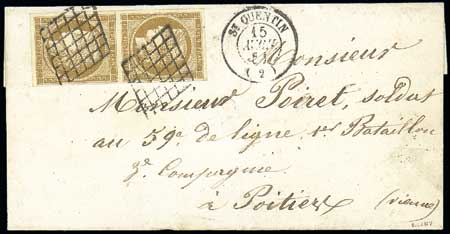 ST QUENTIN
15
(2)
Monsieur
Monsieur Poiret, soldat
au 39e de ligne 1er Bataillon
3e Compagnie
à Poitiers (Vienne)